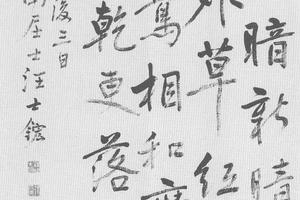 暗新晴
草紅
相和
乾更落
後三日
居士汪士鋐